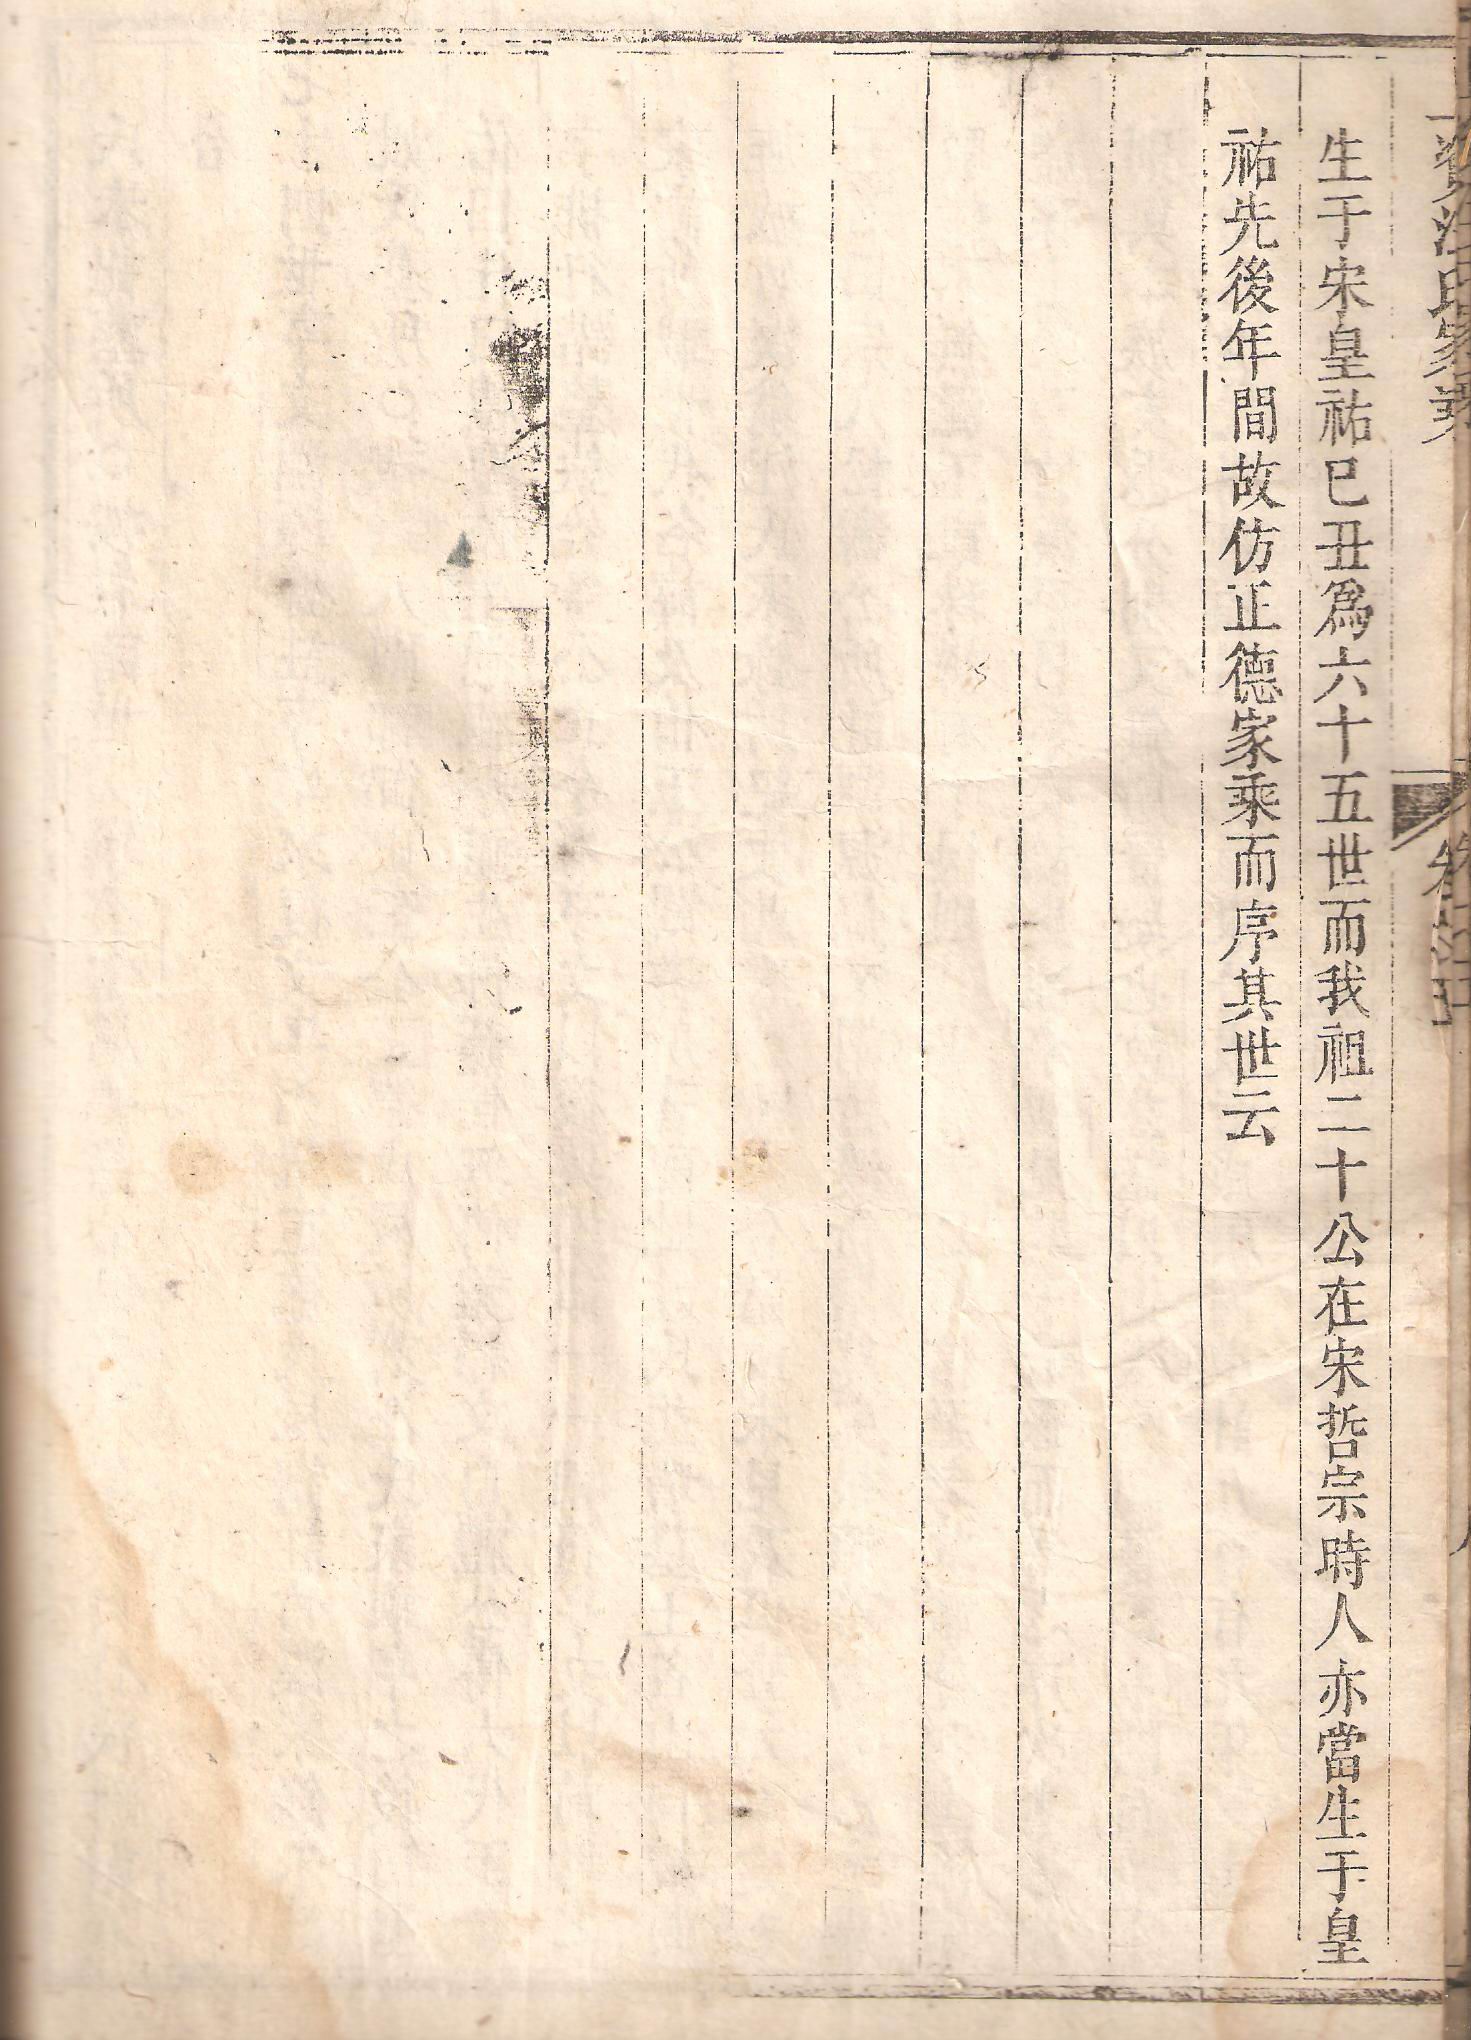 汪氏家乘
生于宋皇祐已丑爲六十五世而我祖二十公在宋哲宗時人亦當生于皇
祐先後年間故仿正德家乘而序其世云